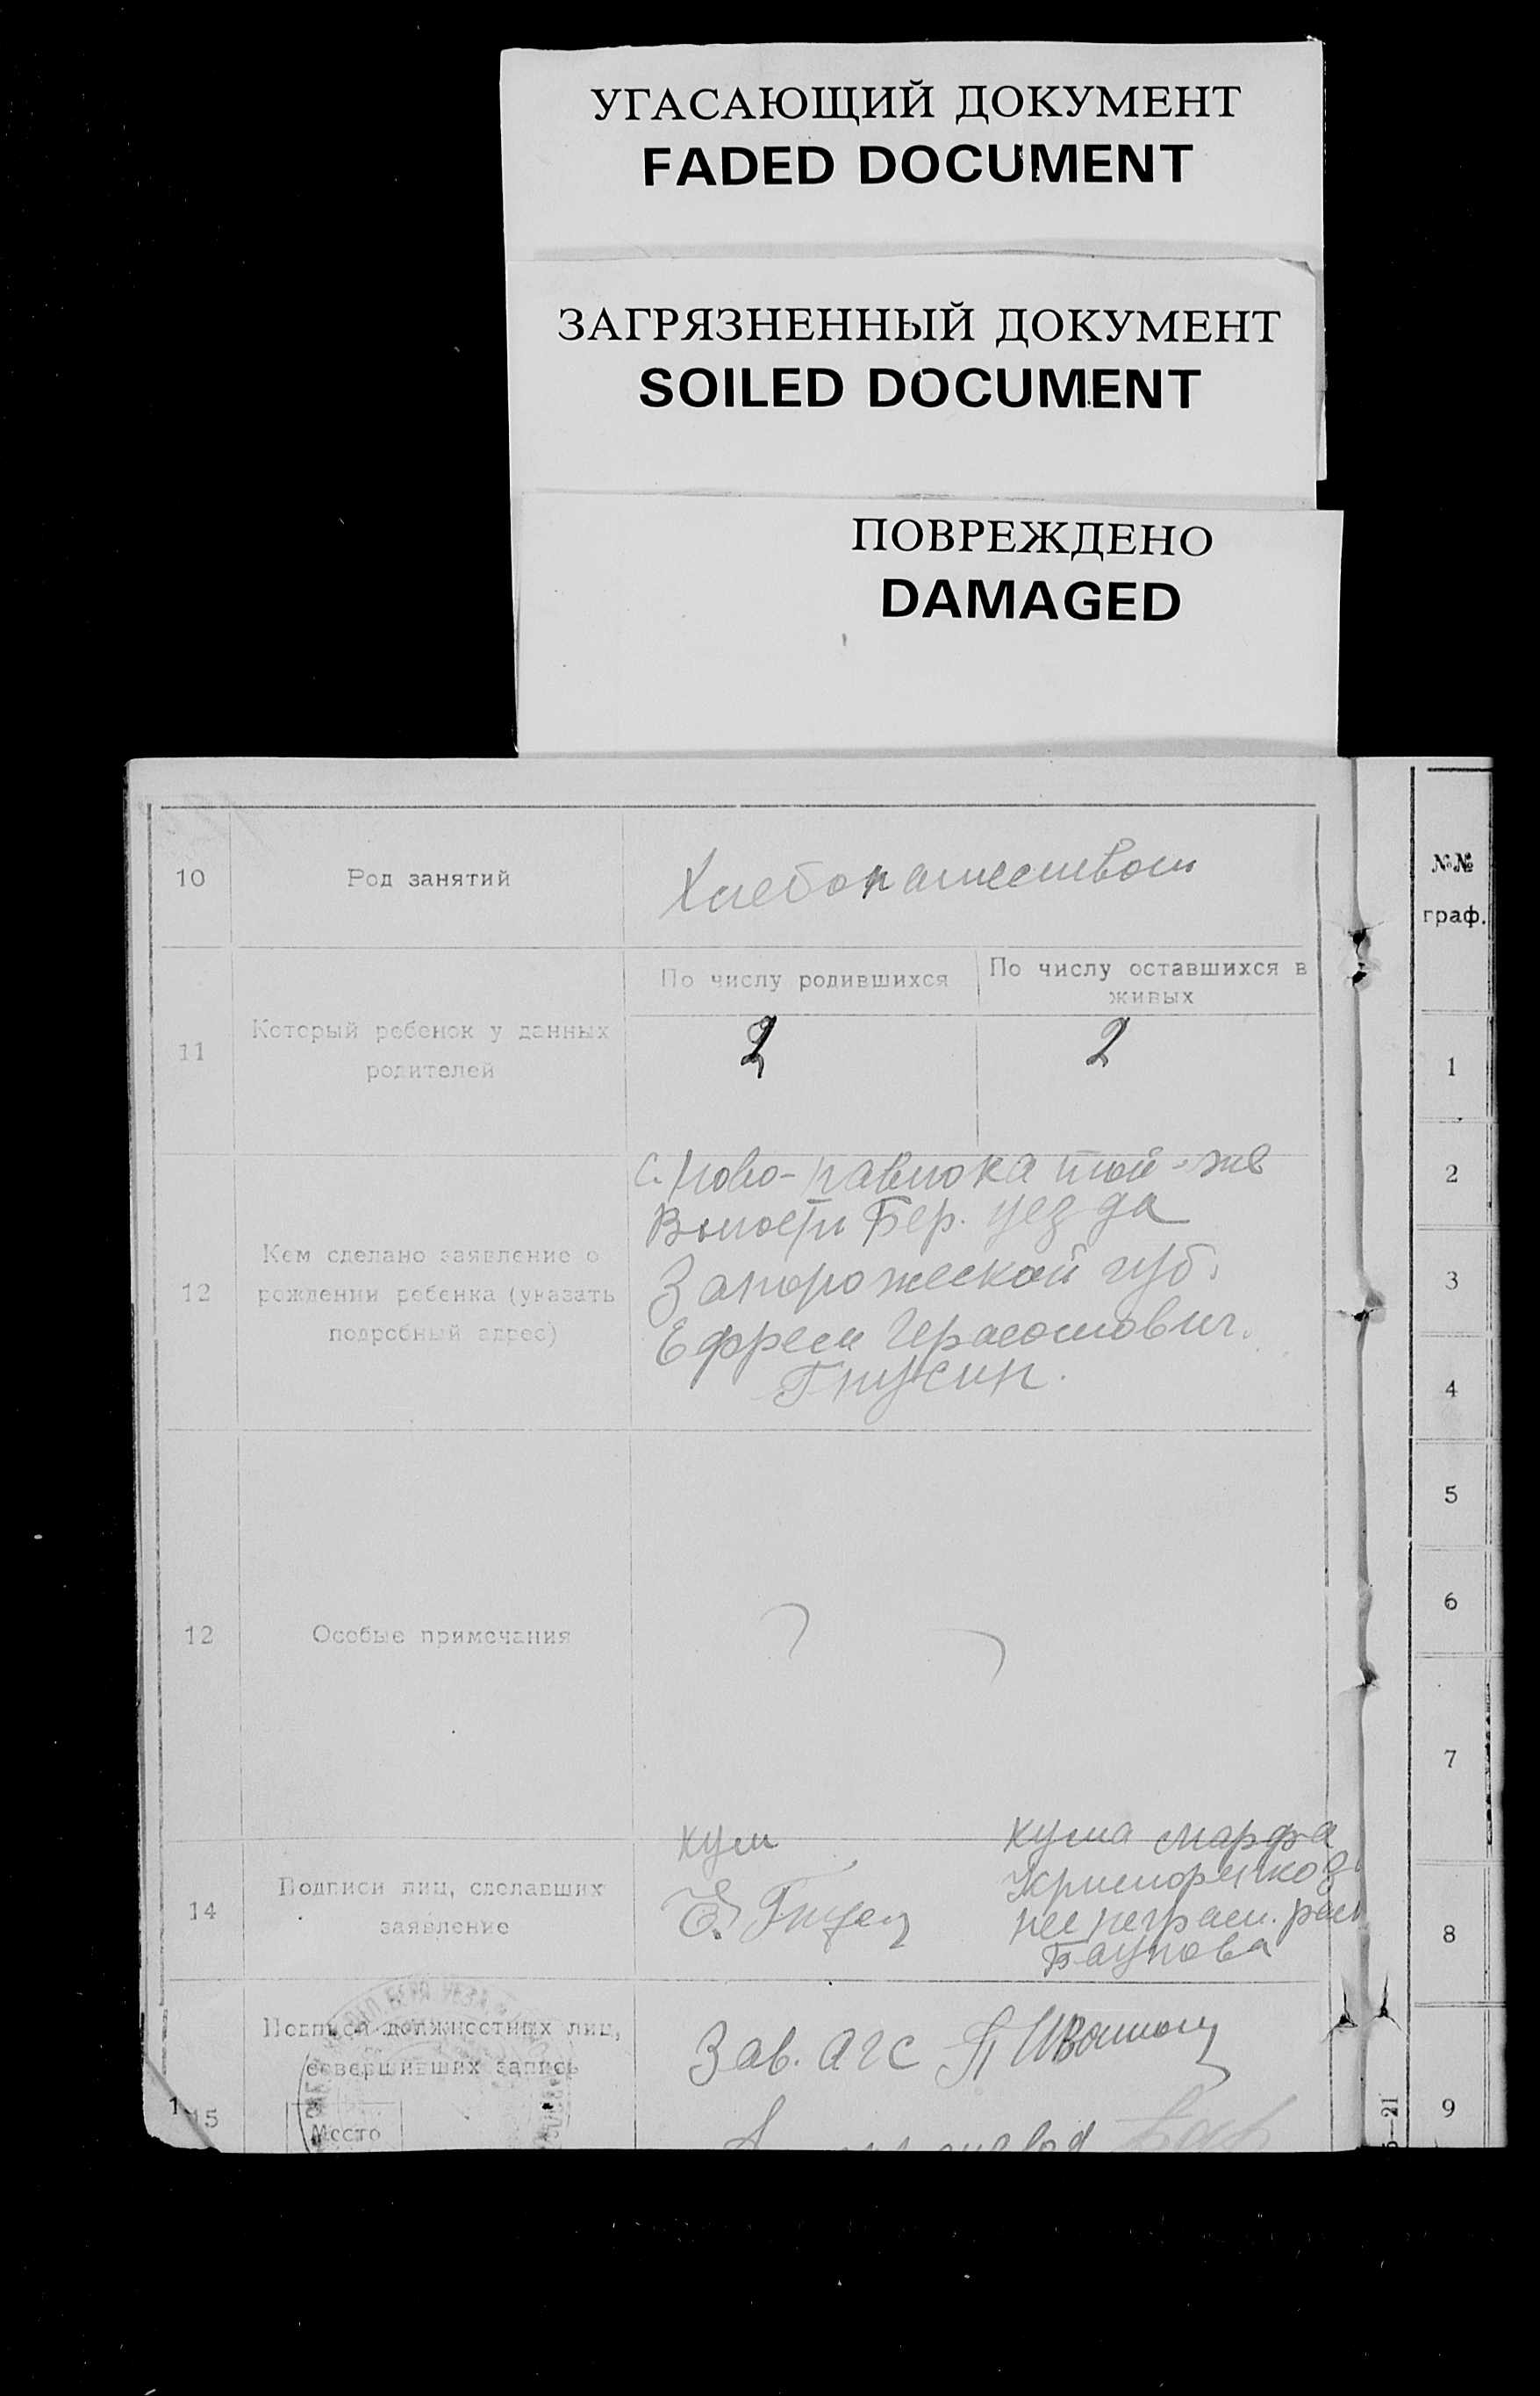 УГАСАЮЩИЙ ДОКУМЕНТ
FADED DOCUMENT
ЗАГРЯЗНЕННЫЙ ДОКУМЕНТ
SOILED DOCUMENT
ПОВРЕЖДЕНО
DAMAGED
10
Род занятий
Хлебопашеством
11
Который ребенок у данных
родителей
По числу родившихся
По числу оставшихся в
живых
2
2
12
Кем сделано заявление о
рождении ребенка (указать
подробный адрес)
с. Ново-павловка той-же
Волости Бер. уезда
Запорожской губ.
Ефрем Герасомович
12
Особые примечания
14
Подписи лиц, сделавших
заявление
кум
Е.
кума марфа
не неграм. рас
15
Подписи должностных лиц,
совершивших запись
Место
Зав. агс П
№№
граф.
1
2
3
4
5
6
7
8
9
5—21